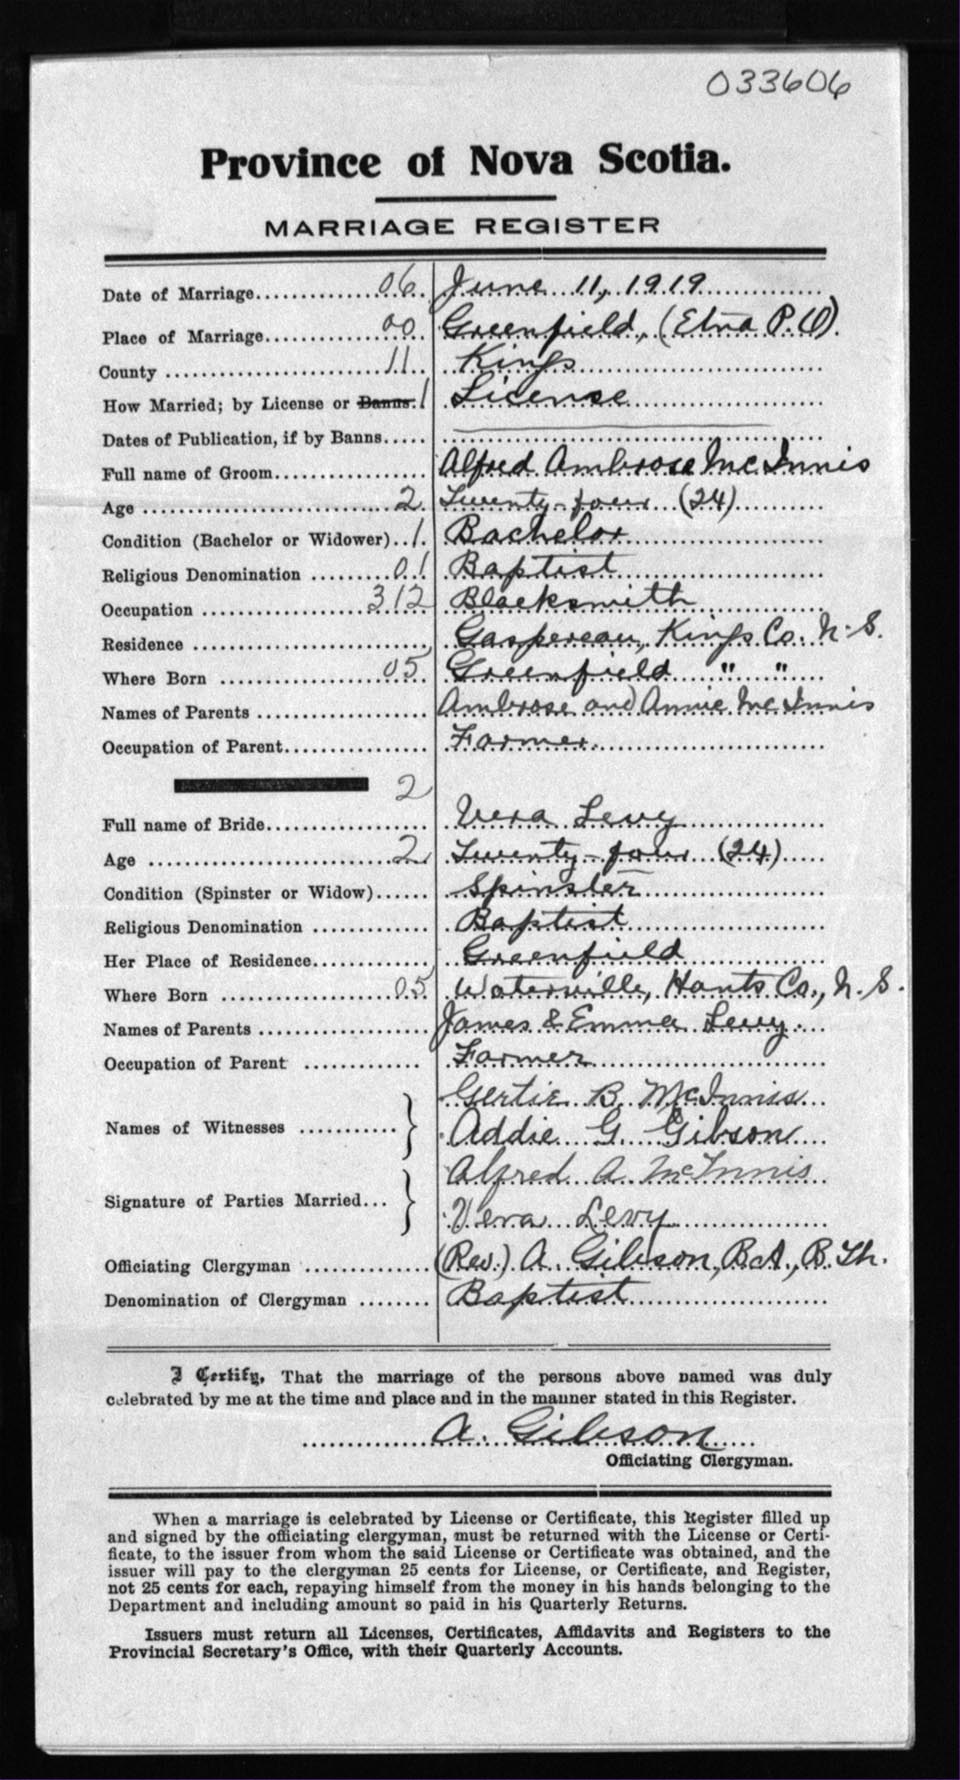 033606
Province of Nova Scotia.
MARRIAGE REGISTER
Date of Marriage 06 June 11, 1919
Place of Marriage 00 Greenfield, (Etna P.O).
County 11 Kings
How Married; by License or Banns. 1 License
Dates of Publication, if by Banns
Full name of Groom Alfred Ambrose McInnis
Age 2 Twenty-four (24)
Condition (Bachelor or Widower) 1 Bachelor
Religious Denomination 01 Baptist
Occupation 312 Blacksmith
Residence Gaspereau, Kings Co. N.S.
Where Born 05 Greenfield " "
Names of Parents Ambrose and Annie McInnis
Occupation of Parent Farmer
2
Full name of Bride Vera Levy
Age 2 Twenty-four (24)
Condition (Spinster or Widow) Spinster
Religious Denomination Baptist
Her Place of Residence Greenfield
Where Born 05 Waterville, Hants Co., N.S.
Names of Parents James & Emma Levy
Occupation of Parent Farmer
Gertie B. McInnis
Names of Witnesses
Addie G. Gibson
Alfred A McInnis
Signature of Parties Married
Vera Levy
Officiating Clergyman (Rev.) A. Gibson, B.A., B.Th.
Denomination of Clergyman Baptist
I Certify, That the marriage of the persons above named was duly
celebrated by me at the time and place and in the manner stated in this Register.
A. Gibson
Officiating Clergyman.
When a marriage is celebrated by License or Certificate, this Register filled up
and signed by the officiating clergyman, must be returned with the License or Certi-
ficate, to the issuer from whom the said License or Certificate was obtained, and the
issuer will pay to the clergyman 25 cents for License, or Certificate, and Register,
not 25 cents for each, repaying himself from the money in his hands belonging to the
Department and including amount so paid in his Quarterly Returns.
Issuers must return all Licenses, Certificates, Affidavits and Registers to the
Provincial Secretary's Office, with their Quarterly Accounts.